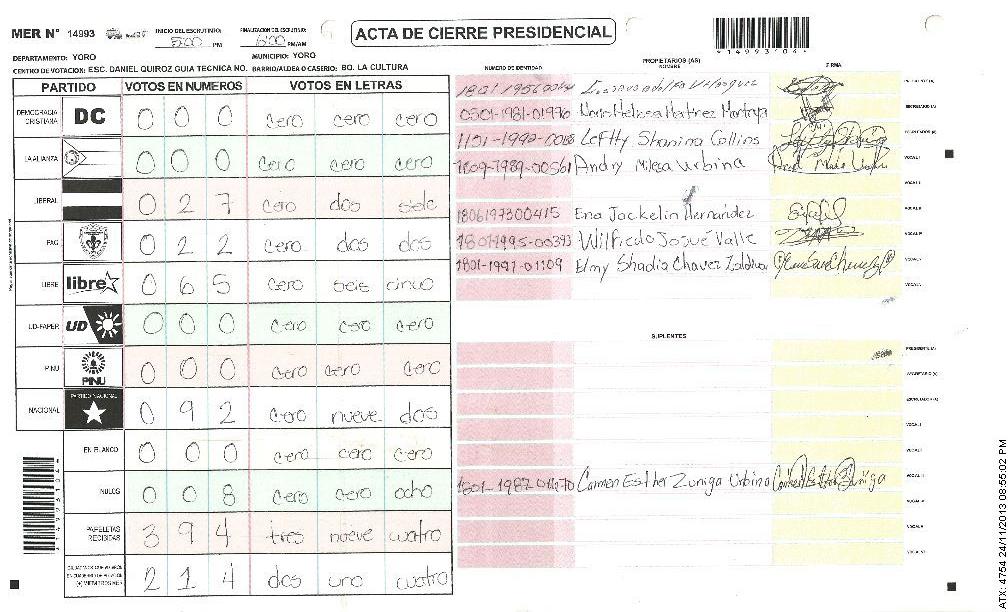 MER N° 14993 INICIO DEL ESCRUTINIO: 5:00 PM FINALIZACION DEL ESCRUTINIO: 6:00 PM/AM
ACTA DE CIERRE PRESIDENCIAL
DEPARTAMENTO: YORO MUNICIPIO: YORO
CENTRO DE VOTACION: ESC. DANIEL QUIROZ GUIA TECNICA NO. BARRIO/ALDEA O CASERIO: BO. LA CULTURA
PARTIDO VOTOS EN NUMEROS VOTOS EN LETRAS
DEMOCRACIA CRISTIANA DC 0 0 0 cero cero cero
LA ALIANZA 0 0 0 cero cero cero
LIBERAL 0 2 7 cero dos siete
PAC 0 2 2 cero dos dos
LIBRE libre 0 6 5 cero seis cinco
UD-FAPER UD 0 0 0 cero cero cero
PINU PINU 0 0 0 cero cero cero
NACIONAL PARTIDO NACIONAL 0 9 2 cero nueve dos
EN BLANCO 0 0 0 cero cero cero
NULOS 0 0 8 cero cero ocho
PAPELETAS RECIBIDAS 3 9 4 tres nueve cuatro
CIUDADANOS QUE VOTARON EN CUADERNO DE VOTACION (+) MIEMBROS MER 2 1 4 dos uno cuatro
PROPIETARIOS (AS)
NUMERO DE IDENTIDAD NOMBRE FIRMA
PRESIDENTE (A)
0501-1981-01976 Martinez SECRETARIO (A)
Lefthy Shanina Collins ESCRUTADOR (A)
1809-1989-00561 Andry Urbina VOCAL I
VOCAL II
1806197300415 Ena Jackelin Hernandez
1801-1995-00393 Wilfredo Josué Valle
1801-1991-01109 Elmy Shadia Chavez
SUPLENTES
PRESIDENTE (A)
SECRETARIO (A)
ESCRUTADOR (A)
VOCAL I
Carmen Esther Zuniga Urbina
ATX: 4754 24/11/2013 08:55:02 PM